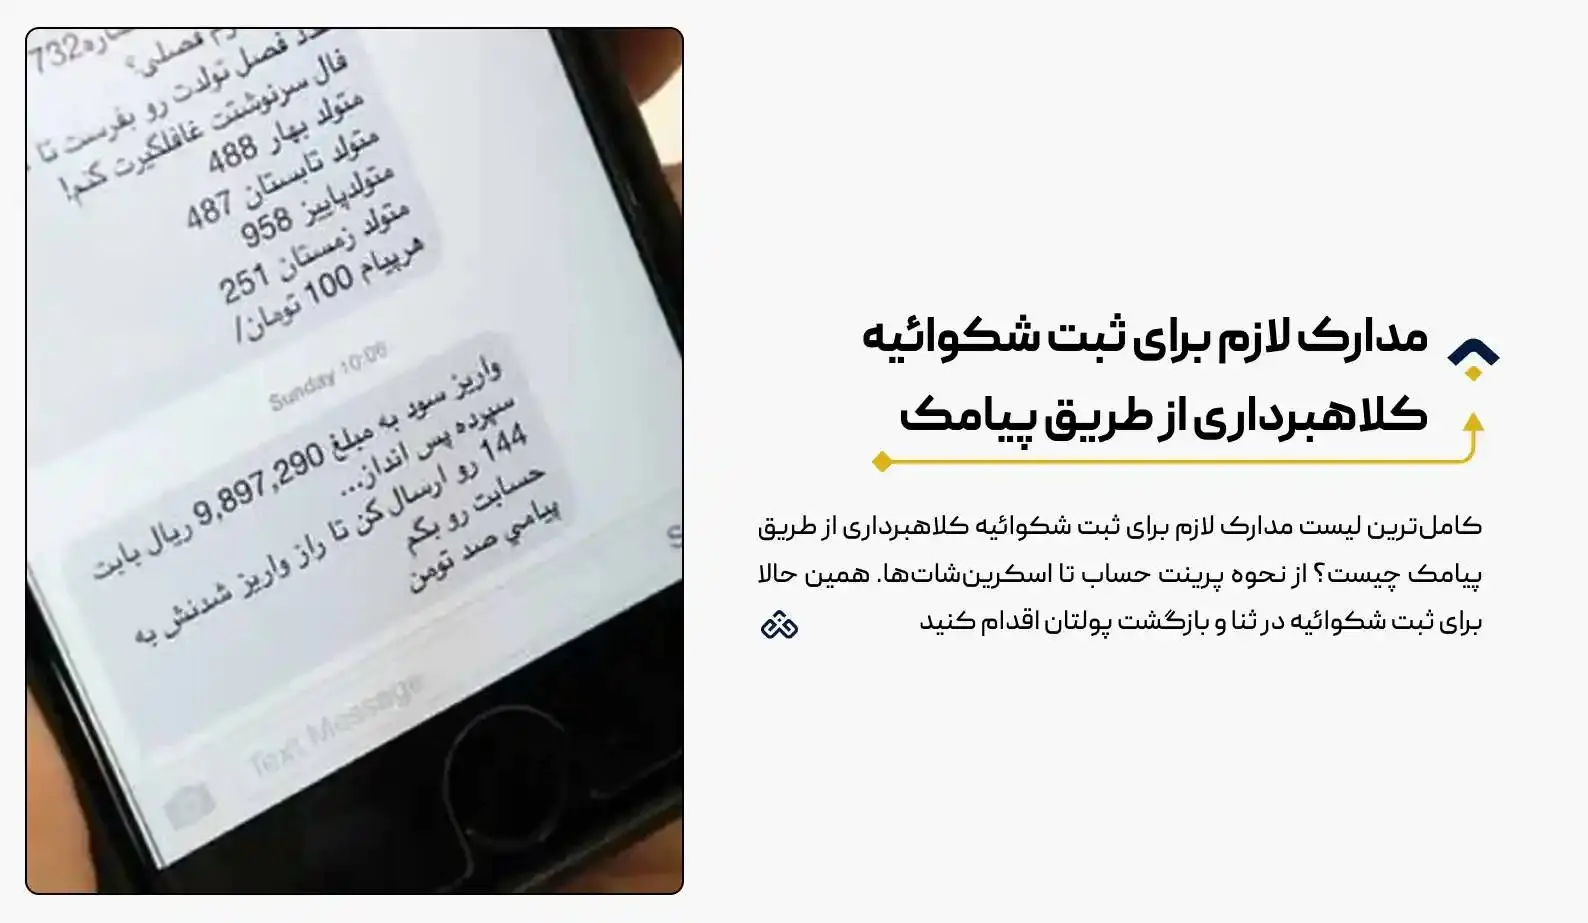 مدارک لازم برای ثبت شکوائیه
کلاهبرداری از طریق پیامک
کامل‌ترین لیست مدارک لازم برای ثبت شکوائیه کلاهبرداری از طریق
پیامک چیست؟ از نحوه پرینت حساب تا اسکرین‌شات‌ها. همین حالا
برای ثبت شکوائیه در ثنا و بازگشت پولتان اقدام کنید
732
فصلی؟
فصل تولدت رو بفرست تا
فال سرنوشتت غافلگیرت کنم!
متولد بهار 488
متولد تابستان 487
متولدپاییز 958
متولد زمستان 251
هرپیام 100 تومان/
Sunday 10:06
واریز سود به مبلغ 9,897,290 ریال بابت
سپرده پس انداز...
144 رو ارسال کن تا راز واریز شدنش به
حسابت رو بگم
پیامي صد تومن
Text Message
S